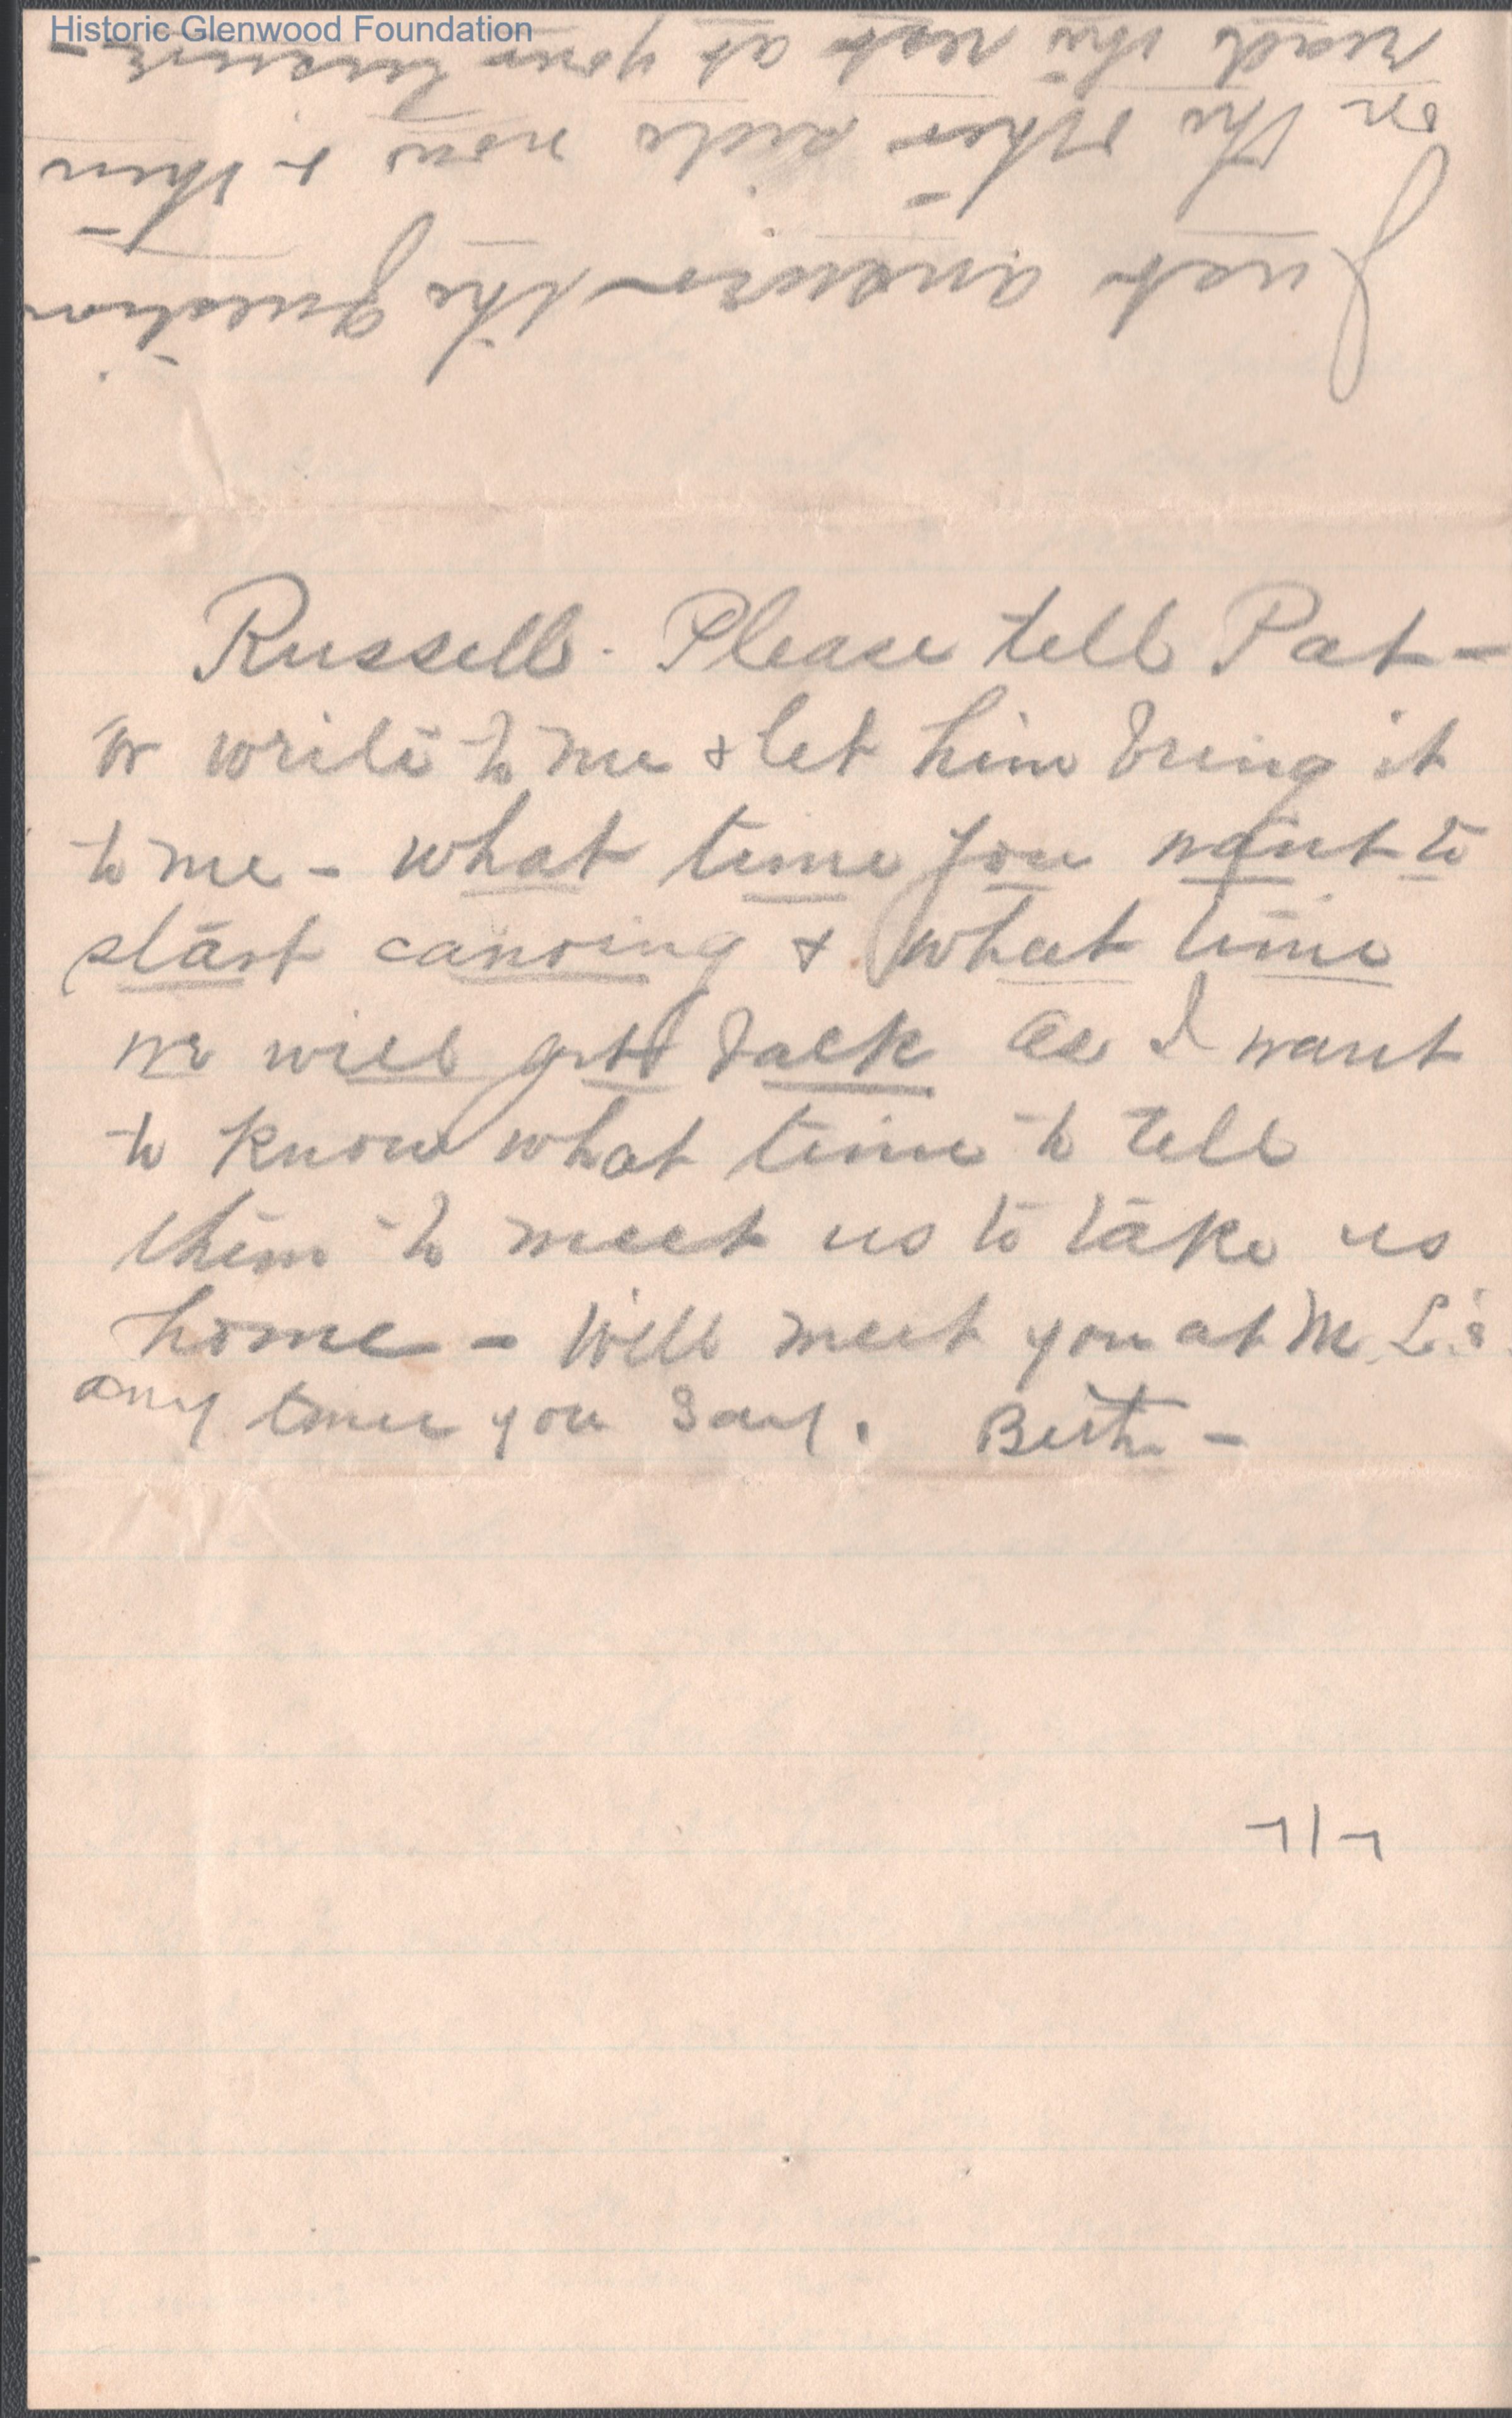 Historic Glenwood Foundation
Just answer the question
on the other side now & then
read the rest at your leisure -
Russell. Please tell Pat -
or write to me & let him bring it
to me - what time you want to
start canoing & what time
we will get back as I want
to know what time to tell
them to meet us to take us
home - Will meet you at M. L.'s
any time you say. Beth -